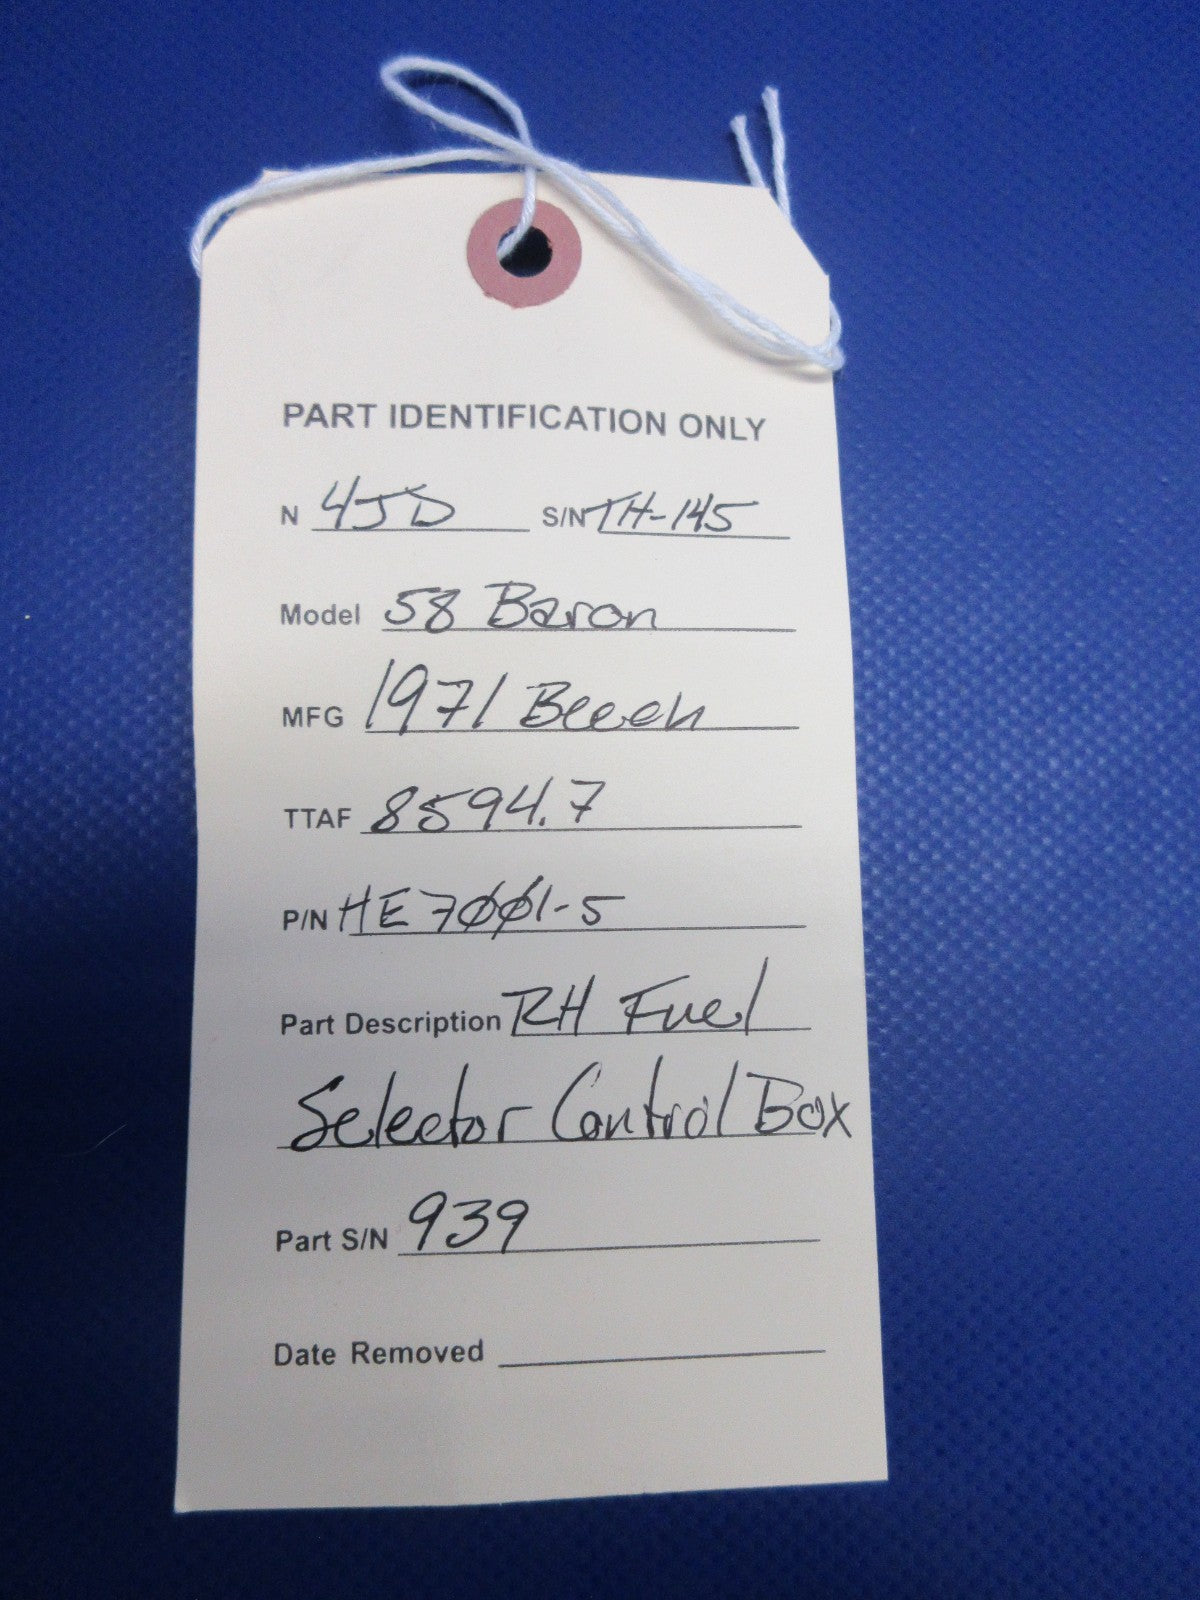 PART IDENTIFICATION ONLY
N 4JD S/N TH-145
Model 58 Baron
MFG 1971 Beech
TTAF 8594.7
P/N HE7001-5
Part Description RH Fuel
Selector Control Box
Part S/N 939
Date Removed